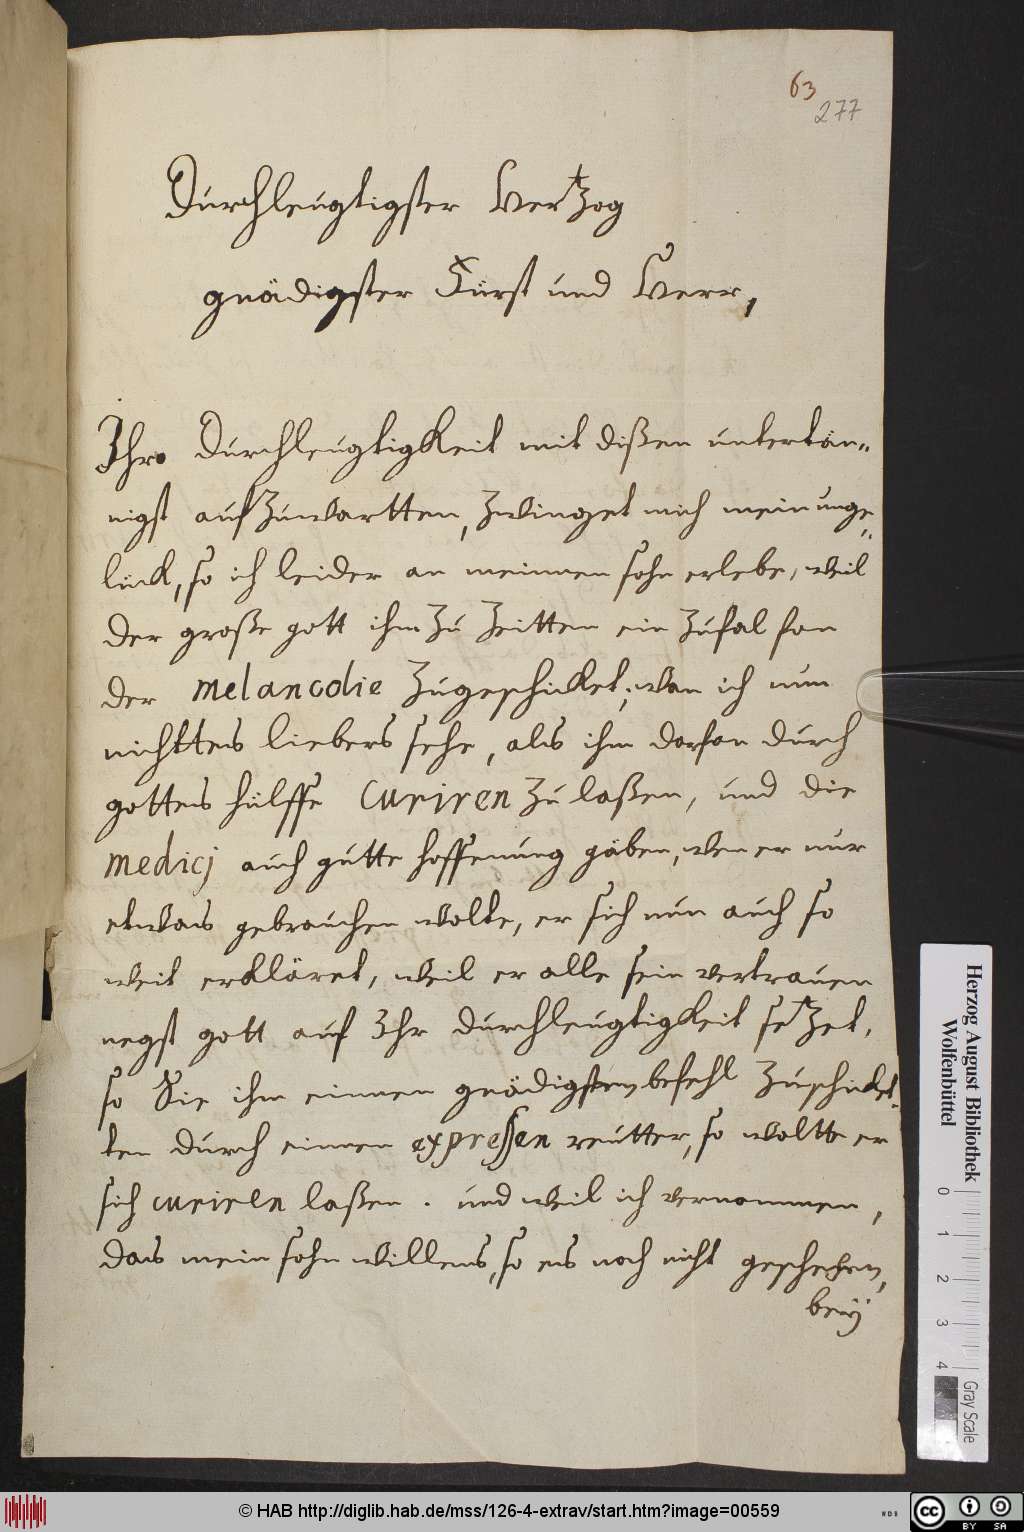 63
277
Durchleugtigster Hertzog
gnädigster Fürst und Herr,
Ihro Durchleugtigkeit mit dißen untertän-
nigst aufzuwartten, zwinget mich mein unge-
lück, so ich leider an meinnen sohn erlebe, weil
der große gott ihm zu zeitten ein zufal fon
der melancolie zugeschicket, wan ich nun
nichttes liebers sehe, als ihm darfon durch
gottes hülffe curiren zu laßen, und die
medicj auch gutte hoffenung gäben, wen er nur
etwas gebrauchen wolte, er sich nun auch so
weit erkläret, weil er alle sein vertrauen
negst gott auf Ihr durchleugtigkeit setzet,
so Sie ihm einnen gnädigsten befehl zuschicket-
ten durch einnen expressen reutter, so woltte er
sich curiren laßen. und weil ich vernommen,
das mein sohn willens, so es noch nicht geschehen,
beÿ
Herzog August Bibliothek
Wolfenbüttel
0 1 2 3 4
Gray Scale
© HAB http://diglib.hab.de/mss/126-4-extrav/start.htm?image=00559
WDB
CC BY SA